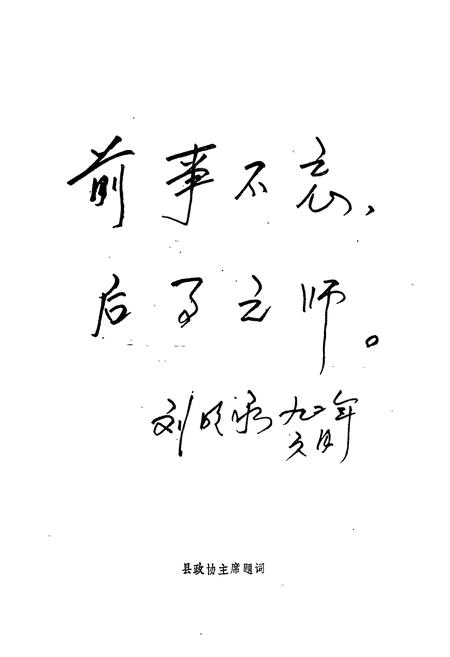 前事不忘,
后事之师。
刘明 九二年
六月
县政协主席题词